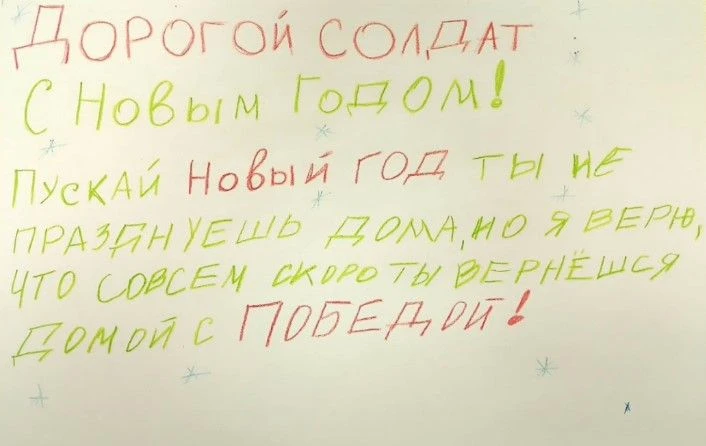 Дорогой солдат
С Новым Годом!
Пускай Новый год ты не
празднуешь дома, но я верю,
что совсем скоро ты вернёшся
домой с Победой!